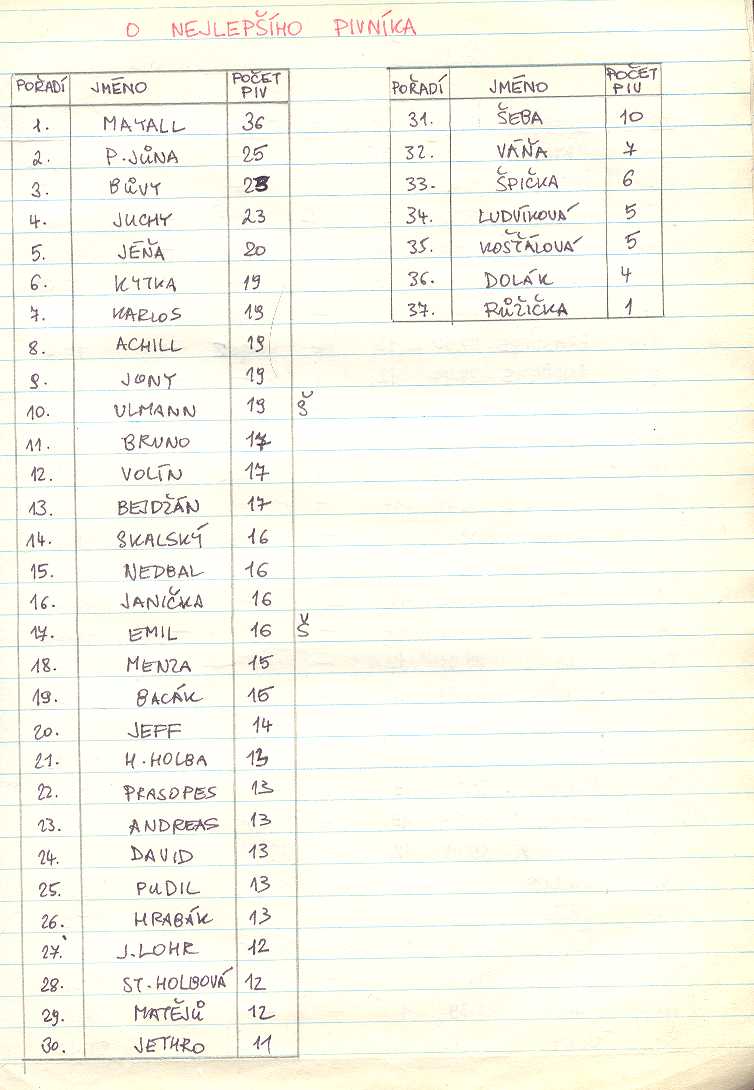 O NEJLEPŠÍHO PIVNÍKA
POŘADÍ JMÉNO POČET PIV
1. MAYALL 36
2. P.JŮNA 25
3. BŮVY 23
4. JUCHY 23
5. JÉŇA 20
6. KYTKA 19
7. KARLOS 19
8. ACHILL 19
9. JONY 19
10. ULMANN 19 Š
11. BRUNO 17
12. VOLÍN 17
13. BEJDŽÁN 17
14. SKALSKÝ 16
15. NEDBAL 16
16. JANIČKA 16
17. EMIL 16 Š
18. MENZA 15
19. BACÁK 15
20. JEFF 14
21. H.HOLBA 13
22. PRASOPES 13
23. ANDREAS 13
24. DAVID 13
25. PUDIL 13
26. HRABÁK 13
27. J.LOHR 12
28. ST.HOLBOVÁ 12
29. MATĚJŮ 12
30. JETHRO 11
POŘADÍ JMÉNO POČET PIV
31. ŠEBA 10
32. VÁŇA 7
33. ŠPIČKA 6
34. LUDVÍKOVÁ 5
35. KOŠŤÁLOVÁ 5
36. DOLÁK 4
37. RŮŽIČKA 1